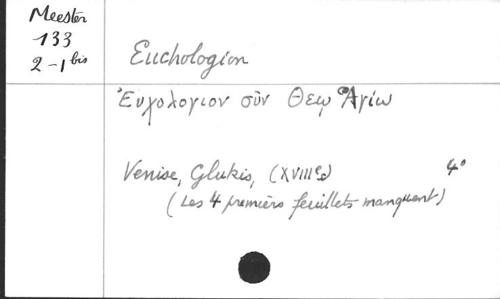 Meester
133
2-1 bis
Euchologion
Εὐχολογιον σῦν Θεῳ Ἁγίω
Venise, Glukis, (XVIII e s) 4°
(Les 4 premiers feuillets manquent)